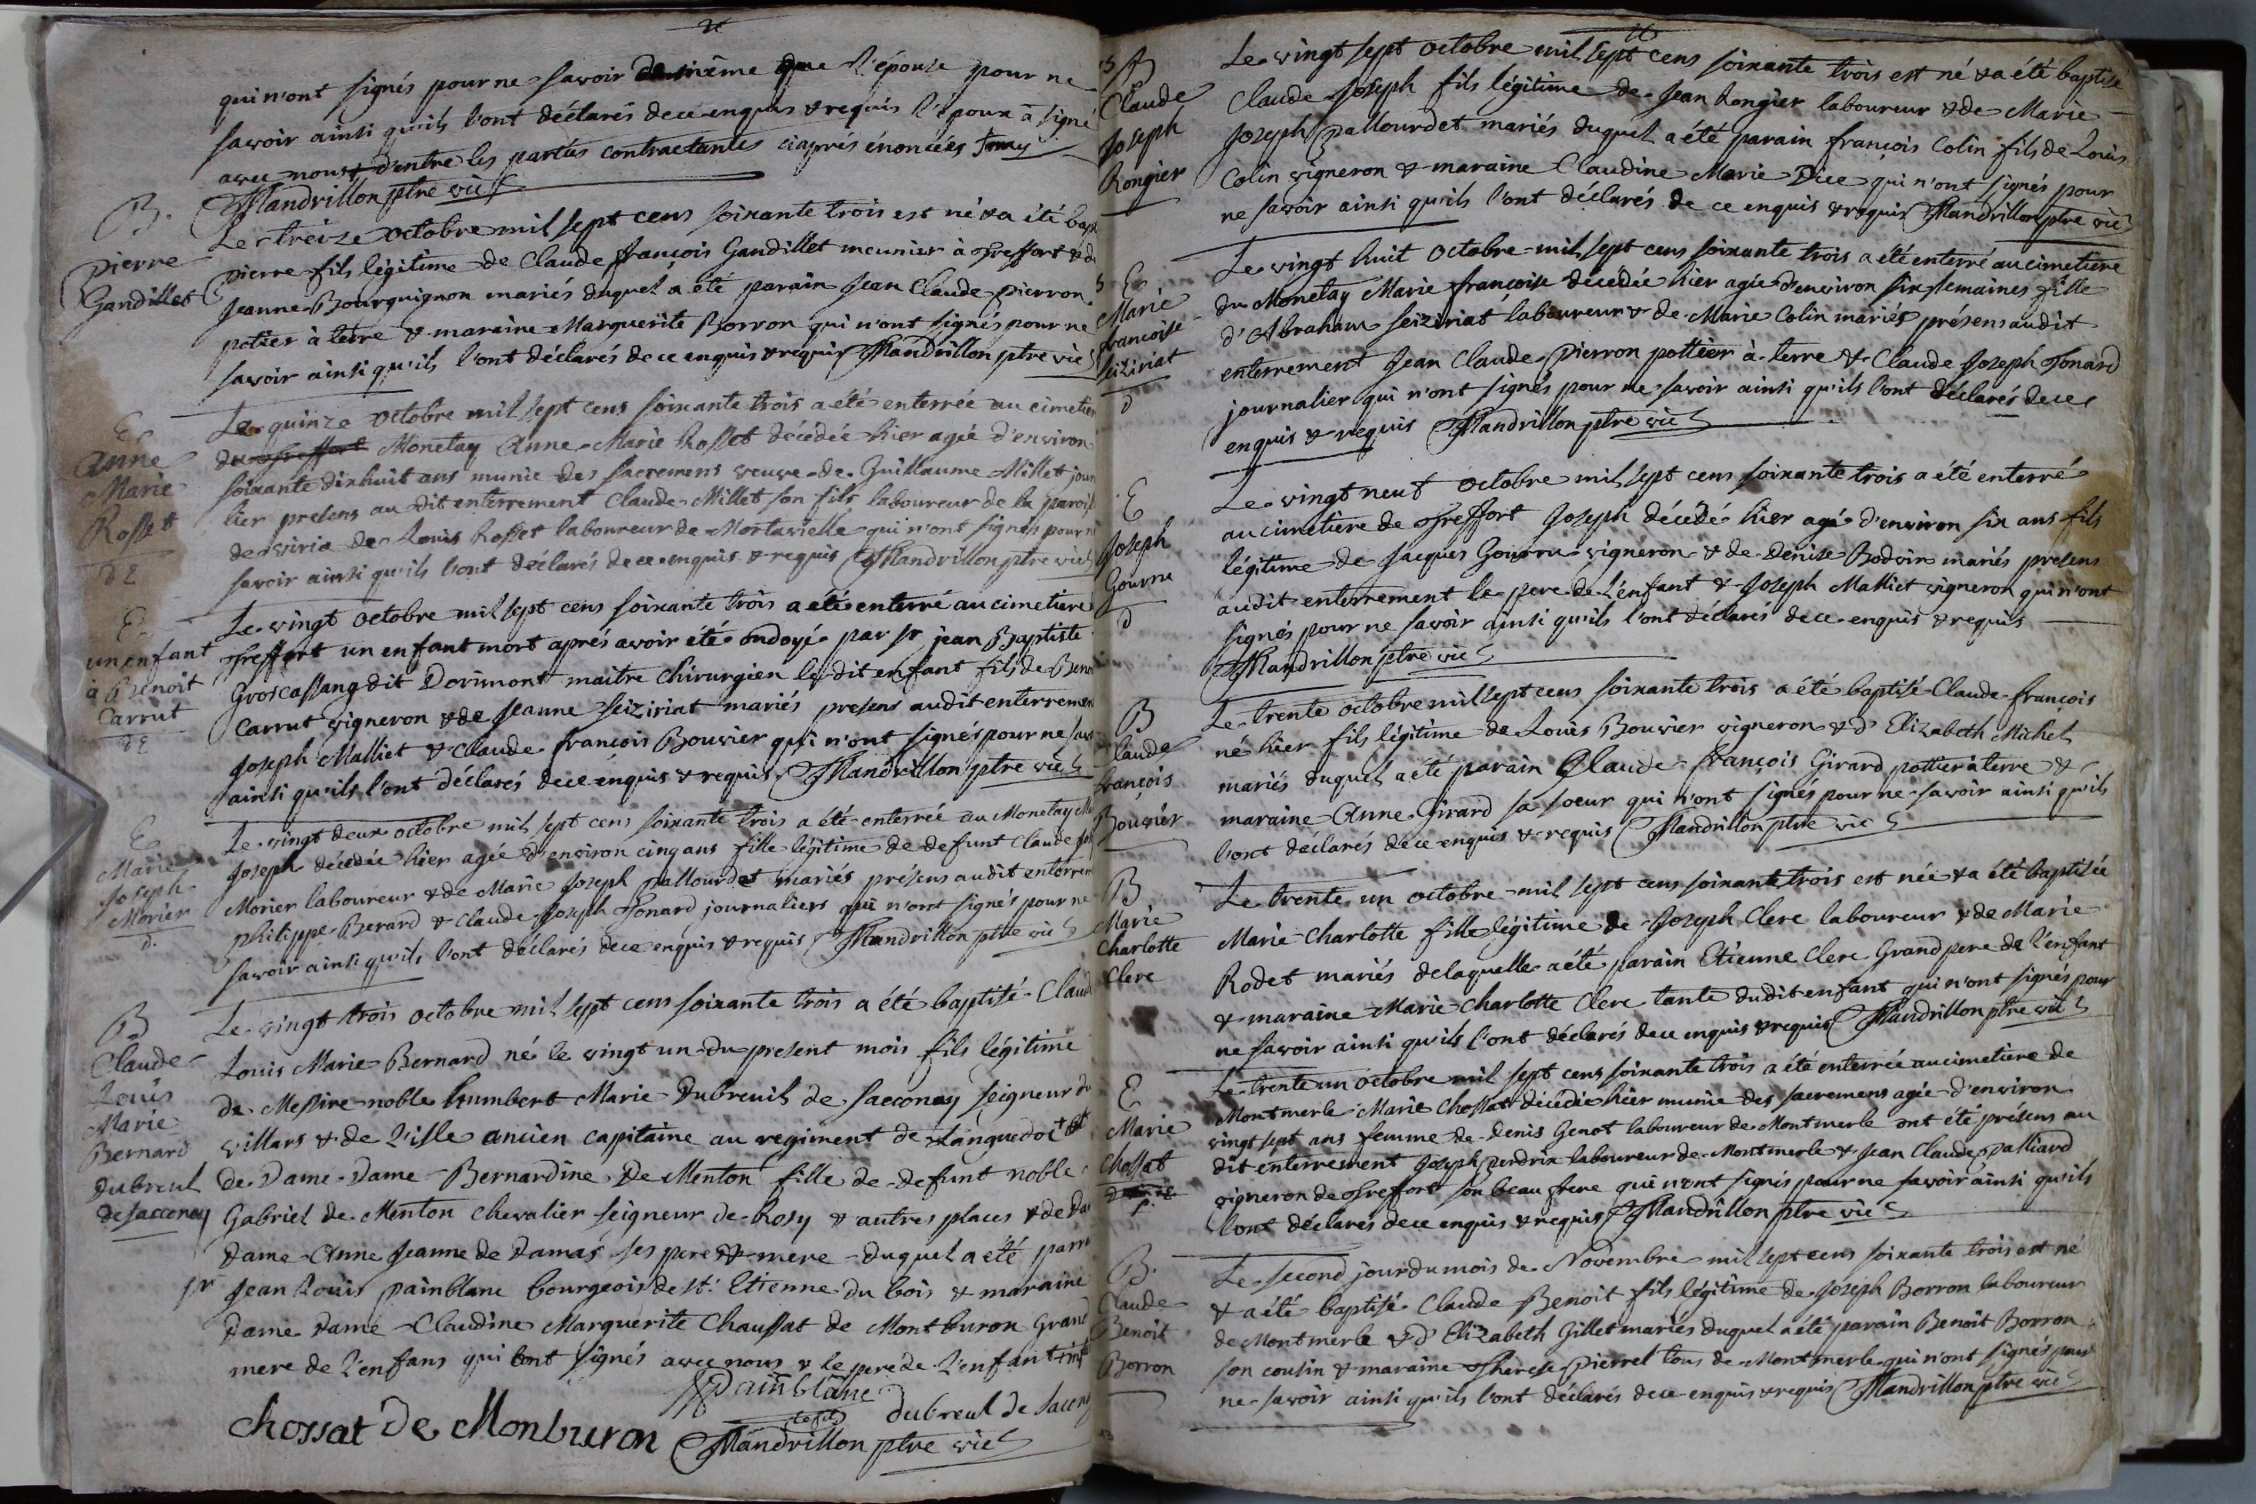 qui n'ont signés pour ne savoir de même que l'épouse pour ne
savoir ainsi qu'ils l'ont déclarés de ce enquis & requis l'époux a signé
avec nous & d'entre les parties contractantes ciaprés énoncées
Mandrillon ptre vic
B.
pierre
Gandillet
Le treize octobre mil sept cens soixante trois est né & a été bapt
pierre fils légitime de Claude françois Gandillet meunier à Treffort & d
Jeanne Bourguignon mariés duquel a été parain Jean Claude pierron
potier à terre & maraine Marguerite Borron qui n'ont signés pour ne
savoir ainsi qu'ils l'ont déclarés de ce enquis & requis Mandrillon ptre vic
E
Anne
Marie
Rosset
d E
Le quinze octobre mil sept cens soixante trois a été enterrée au cimetier
de Treffort Monetay Anne Marie Rosset décédée hier agée d'environ
soixante dixhuit ans munie des sacremens veuve de Guillaume Millet jour
lier presens au dit enterrement Claude Millet son fils laboureur de la parois
de viria de Louis Rosset laboureur de Mortavielle qui n'ont signés pour n
savoir ainsi qu'ils l'ont déclarés de ce enquis & requis Mandrillon ptre vic
E
un enfant
à Benoit
Carrut
d E
Le vingt octobre mil sept cens soixante trois a été enterré au cimetiere
Treffort un enfant mort aprés avoir été ondoyé par sr jean Baptiste
Groscassang dit Dorimont maitre chirurgien le dit enfant fils de Beno
Carrut vigneron & de Jeanne Seiziriat mariés presens audit enterremen
Joseph Malliet & Claude françois Bouvier qui n'ont signés pour ne sav
ainsi qu'ils l'ont déclarés de ce enquis & requis Mandrillon ptre vic
E
Marie
Joseph
Morier
d.
Le vingt deux octobre mil sept cens soixante trois a été enterrée au Monetay Ma
Joseph décédée hier agée d'environ cinq ans fille légitime de defunt Claude Jos
Morier laboureur & de Marie Joseph pallourdet mariés présens audit enterrem
philippe Berard & Claude Joseph Thonard journaliers qui n'ont signés pour ne
savoir ainsi qu'ils l'ont déclarés de ce enquis & requis Mandrillon ptre vic
B
Claude
Louis
Marie
Bernard
dubreul
de sacconay
Le vingt trois octobre mil sept cens soixante trois a été baptisé Claud
Louis Marie Bernard né le vingt un du present mois fils légitime
de Messire noble humbert Marie Dubreuil de sacconay seigneur du
villars & de l'isle ancien capitaine au regiment de Languedoc &
de Dame Dame Bernardine De Menton fille de defunt noble
Gabriel de Menton chevalier seigneur de Rosy & autres places & de Da
Dame Anne Jeanne de Damas ses pere & mere duquel a été parrai
sr Jean Louis painblanc bourgeois de St. Etienne du bois & maraine
Dame Dame Claudine Marguerite Chaussat de Montburon Grand
mere de l'enfans qui ont signés avec nous & le pere de l'enfant
painblanc
le fils
dubreul de sacony
chossat de Monburon
Mandrillon ptre vic
B
Claude
Joseph
Rongier
Le vingt sept octobre mil sept cens soixante trois est né & a été baptisé
Claude Joseph fils légitime de Jean Rongier laboureur & de Marie
Joseph pallourdet mariés duquel a été parain françois Colin fils de Louis
Colin vigneron & maraine Claudine Marie Dice qui n'ont signés pour
ne savoir ainsi qu'ils l'ont déclarés de ce enquis & requis Mandrillon ptre vic
E
Marie
francoise
seiziriat
d
Le vingt huit octobre mil sept cens soixante trois a été enterré au cimetiere
du Monetay Marie françoise décédée hier agée d'environ six semaines fille
d'Abraham seiziriat laboureur & de Marie Colin mariés présens audit
enterrement Jean Claude pierron pottier à terre & Claude Joseph Thonard
journalier qui n'ont signés pour ne savoir ainsi qu'ils l'ont déclarés de ce
enquis & requis Mandrillon ptre vic
E
Joseph
Gourne
d
Le vingt neuf octobre mil sept cens soixante trois a été enterré
au cimetiere de Treffort Joseph décédé hier agé d'environ six ans fils
légitime de Jacques vigneron & de denise Bodoin mariés presens
audit enterrement le pere de l'enfant & Joseph Malliet vigneron qui n'ont
signés pour ne savoir ainsi qu'ils l'ont déclarés de ce enquis & requis
Mandrillon ptre vic
B
Claude
françois
Bouvier
Le trente octobre mil sept cens soixante trois a été baptisé Claude françois
né hier fils légitime de Louis Bouvier vigneron & d'Elizabeth Michel
mariés duquel a été parain Claude françois Girard pottier à terre &
maraine Anne Girard sa soeur qui n'ont signés pour ne savoir ainsi qu'ils
l'ont déclarés de ce enquis & requis Mandrillon ptre vic
B
Marie
Charlotte
Clere
Le trente un octobre mil sept cens soixante trois est née & a été baptisée
Marie Charlotte fille légitime de Joseph Clere laboureur & de Marie
Rodet mariés de laquelle a été parain Etienne Clere Grand pere de l'enfant
& maraine Marie Charlotte Clere tante dudit enfant qui n'ont signés pour
ne savoir ainsi qu'ils l'ont déclarés de ce enquis & requis Mandrillon ptre vic
E
Marie
Chossat
Le trente un octobre mil sept cens soixante trois a été enterrée au cimetiere de
Montmerle Marie Chossat décédée hier munie des sacremens agée d'environ
vingt sept ans femme de denis Genot laboureur de Montmerle ont été présens au
dit enterrement Joseph perdrix laboureur de Montmerle & Jean Claude palliard
vigneron de Treffort son beau frere qui n'ont signés pour ne savoir ainsi qu'ils
l'ont déclarés de ce enquis & requis Mandrillon ptre vic
B.
Claude
Benoit
Borron
Le second jour du mois de Novembre mil sept cens soixante trois est né
& a été baptisé Claude Benoit fils légitime de Joseph Borron laboureur
de Montmerle & d'Elizabeth Gillet mariés duquel a été parain Benoit Borron
son cousin & maraine Therese pierrel tous de Montmerle qui n'ont signés pour
ne savoir ainsi qu'ils l'ont déclarés de ce enquis & requis Mandrillon ptre vic